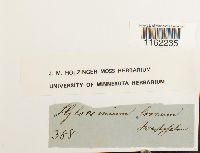 1162235
J. M. HOLZINGER MOSS HERBARIUM
UNIVERSITY OF MINNESOTA HERBARIUM
Hylocomium
388